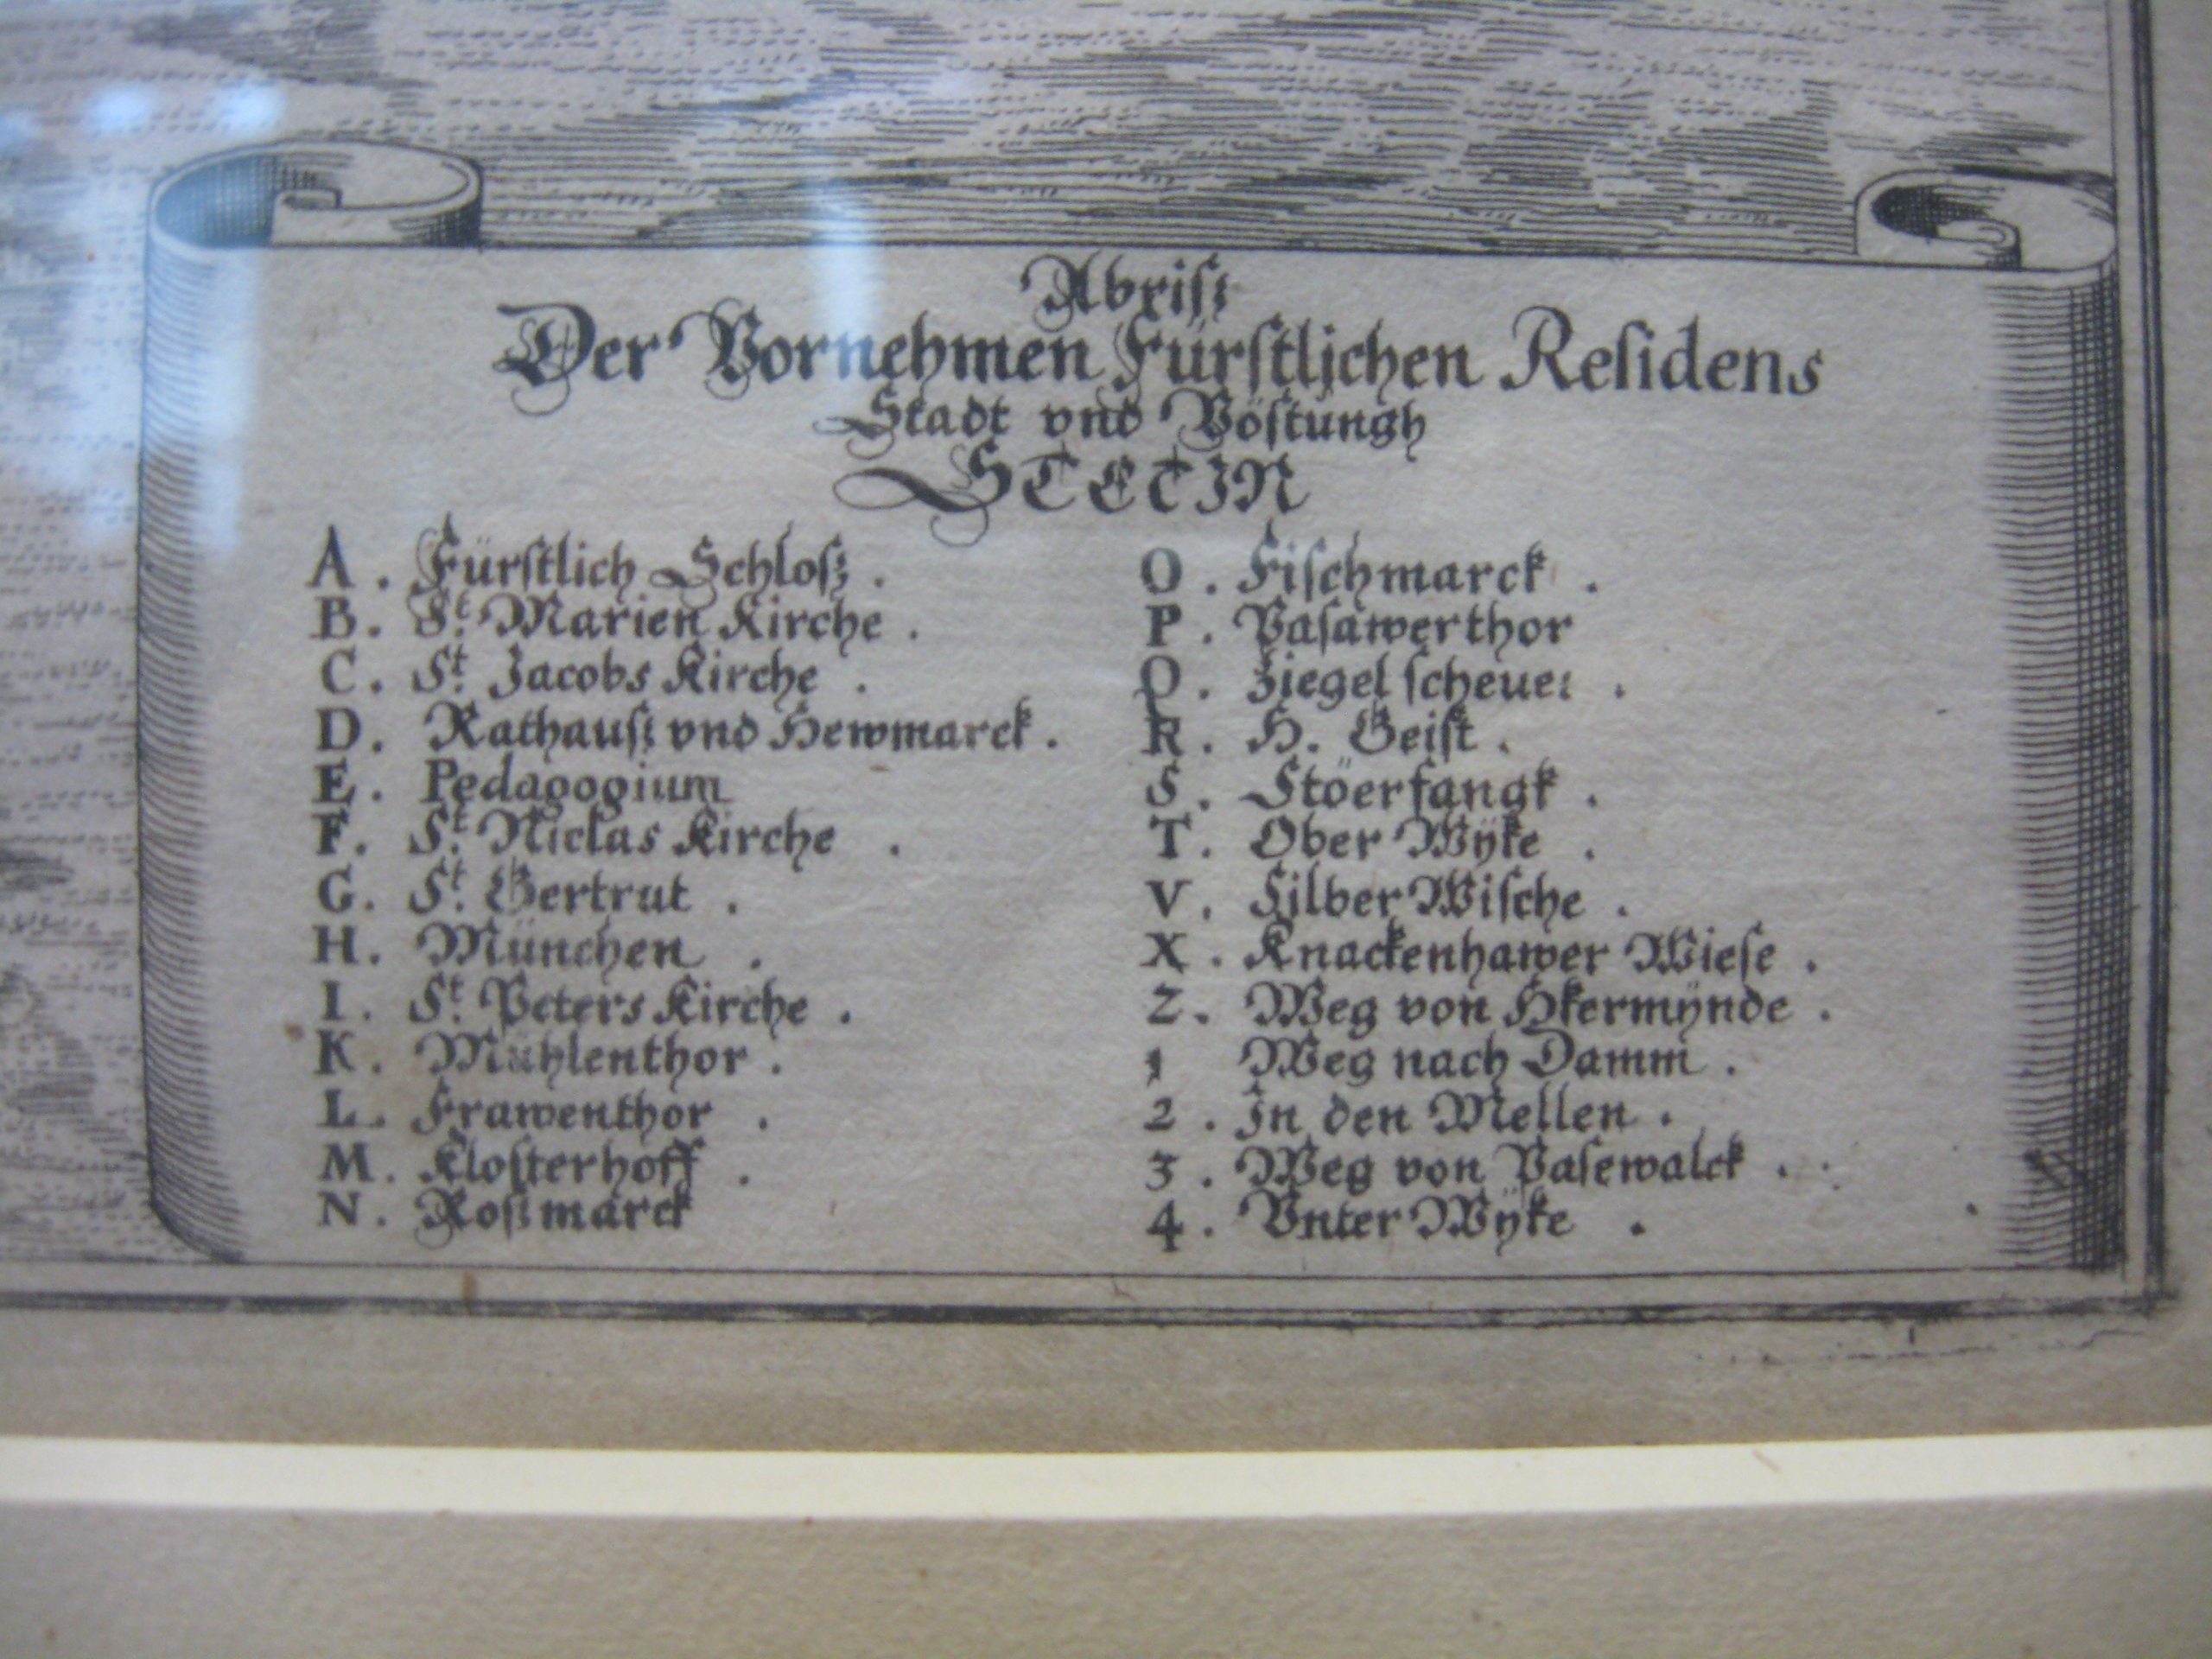 Abriſz
Der Vornehmen Fürſtlichen Reſidens
Stadt vnd Vöſtungh
STETIN
A. Fürſtlich Schloſz.
B. St. Marien Kirche.
C. St. Jacobs Kirche.
D. Rathauſz vnd Hewmarck.
E. Pedagogium
F. St. Niclas Kirche.
G. St. Gertrut.
H. München.
I. St. Peters Kirche.
K. Mühlenthor.
L. Frawenthor.
M. Kloſterhoff.
N. Roſzmarck
O. Fiſchmarck.
P. Paſawerthor
Q. Ziegel ſcheuer.
R. H. Geiſt.
S. Stöerfangk.
T. Ober Wÿke.
V. Silber Wiſche.
X. Knackenhawer Wieſe.
Z. Weg von Vkermÿnde.
1 Weg nach Damm.
2. In den Mellen.
3. Weg von Paſewalck.
4. Vnter Wÿke.